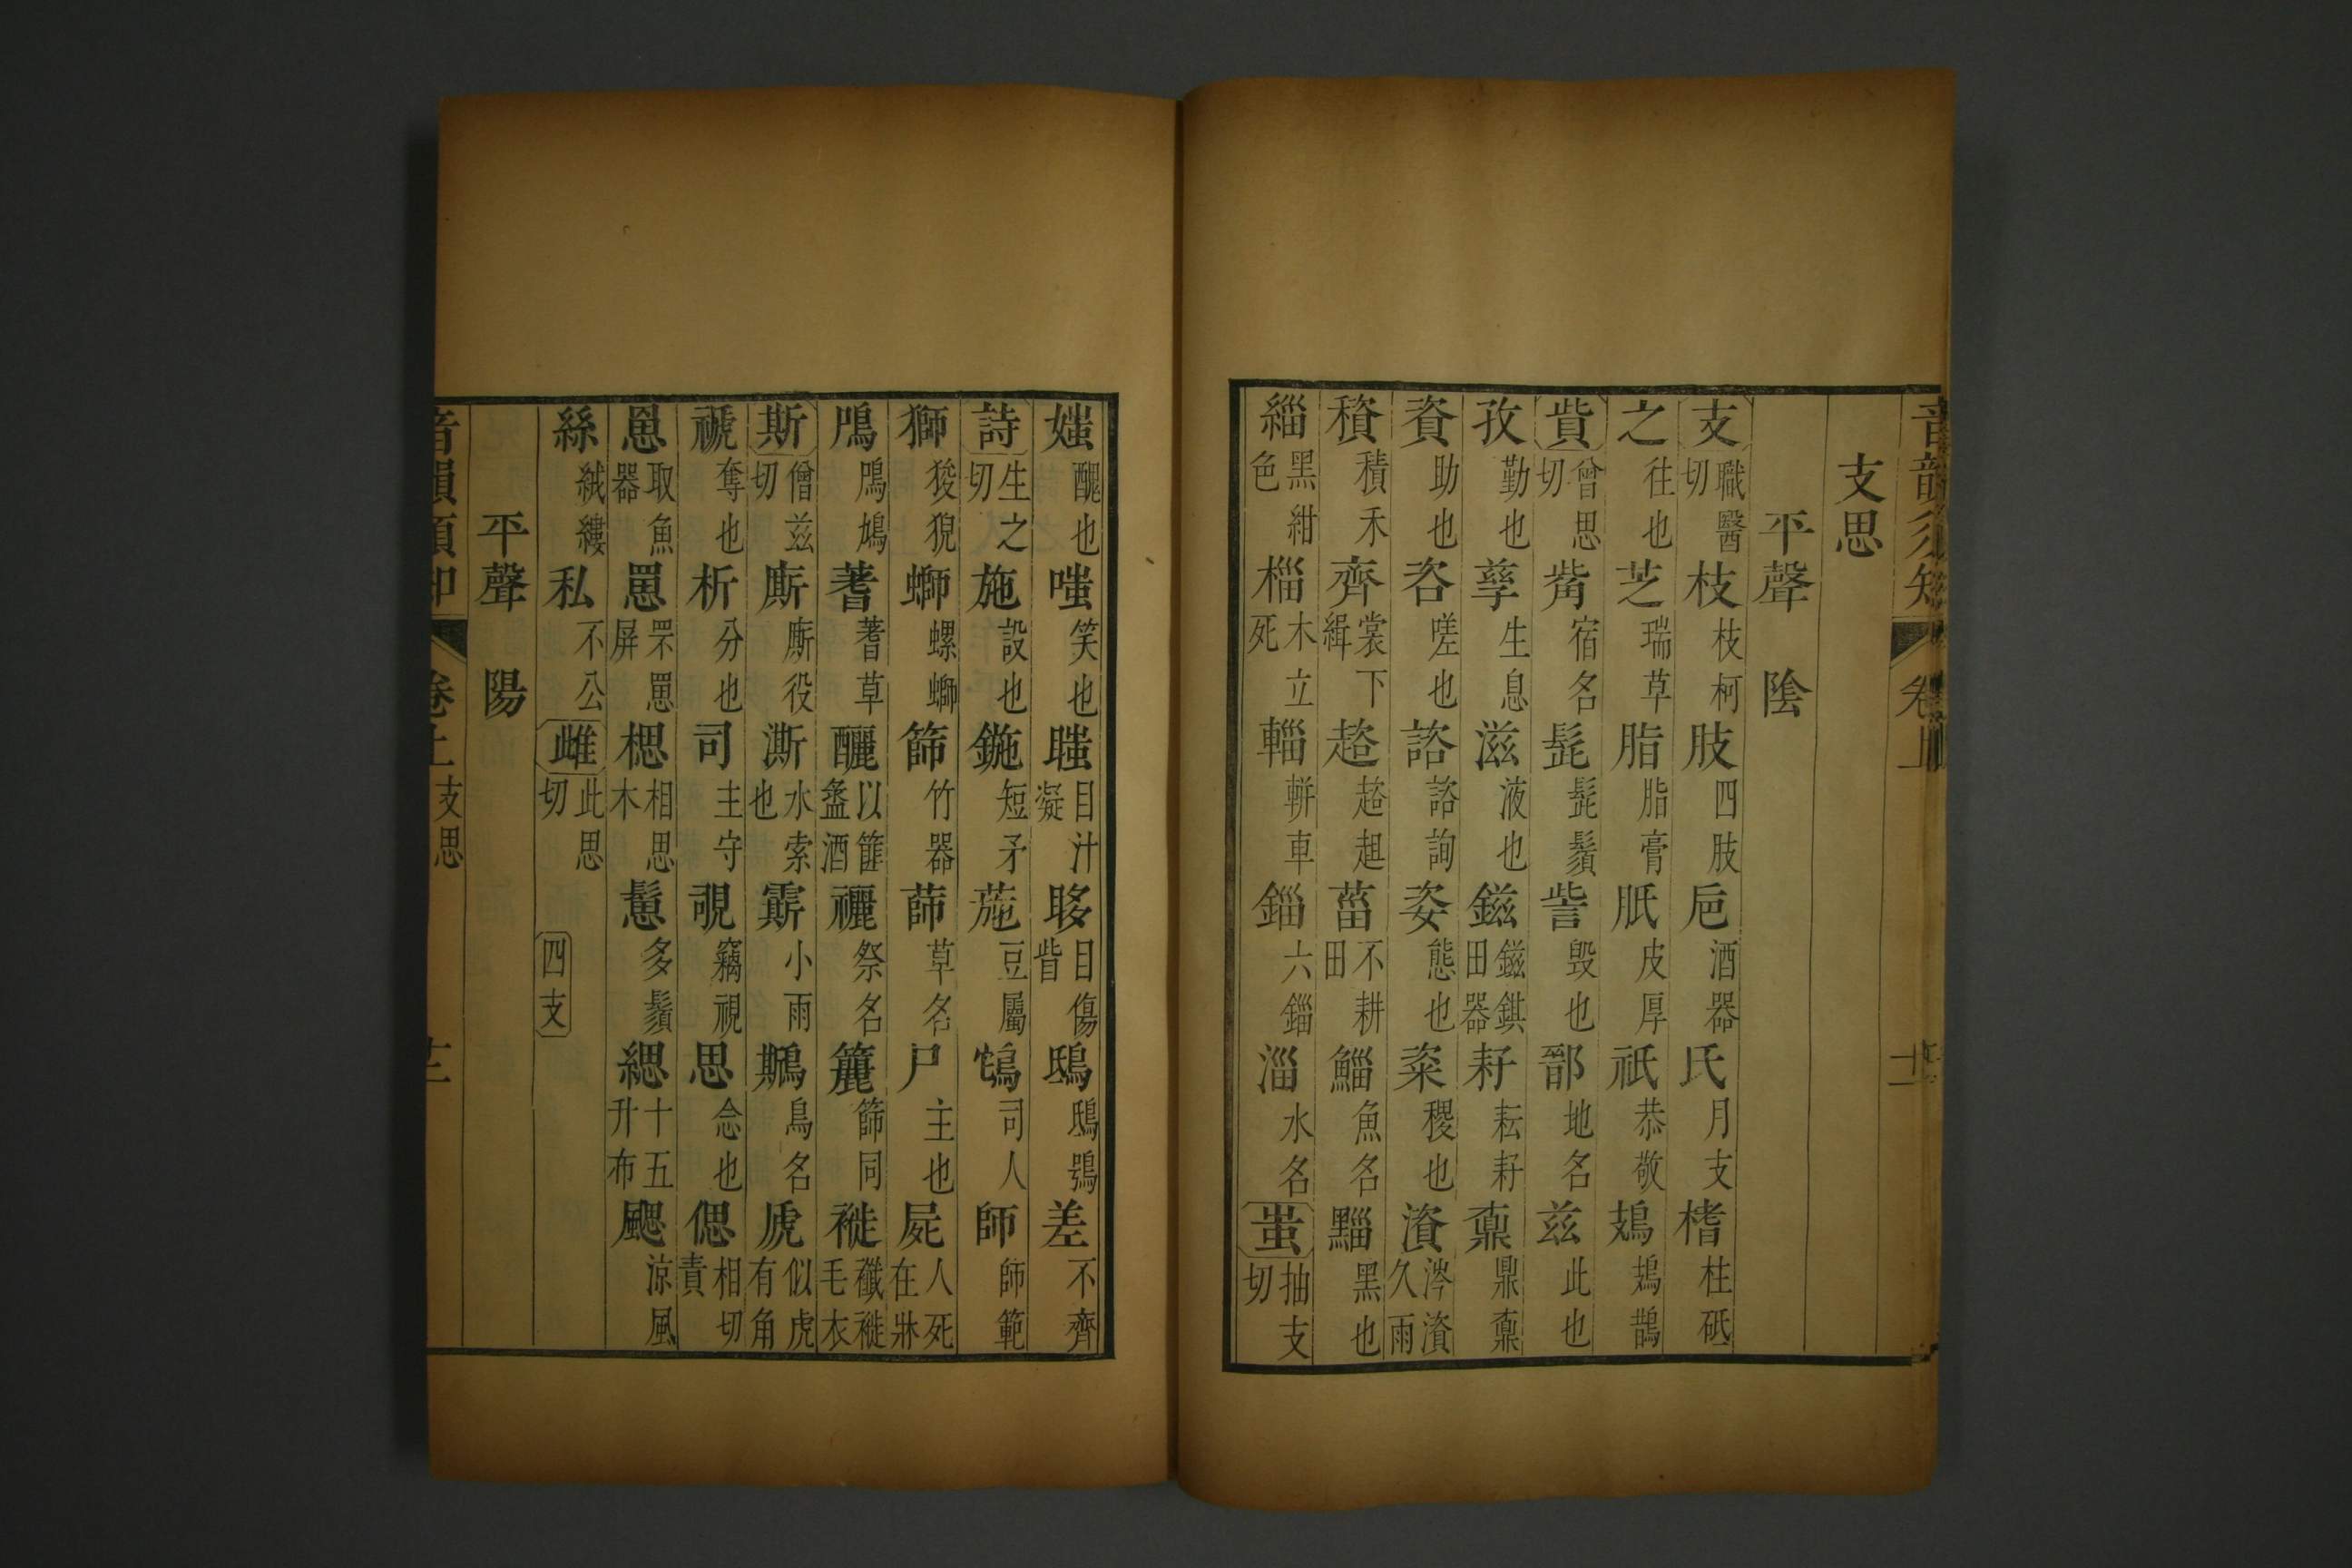 支思
平聲 陰
支職醫切枝枝柯肢四肢巵酒器氏月支榰柱砥
之往也芝瑞草脂脂膏胝皮厚祇恭敬鳷鳷鵲
貲曾思切觜宿名髭髭鬚訾毁也鄑地名兹此也
孜勤也孳生息滋液也鎡鎡錤田器耔耘耔鼒鼎鼒
資助也咨嗟也諮諮詢姿態也粢稷也澬涔澬久雨
穧積禾齊裳下緝趦趦趄菑不耕田鯔魚名黮黑也
緇黑紺色椔木立死輜輧車錙六錙淄水名蚩抽支切
媸醜也嗤笑也瞦目汁凝眵目傷眥鴟鴟鴞差不齊
詩生之切施設也鍦短矛葹豆屬鳾司人師師範
獅狻猊螄螺螄篩竹器蒒草名尸主也屍人死在牀
鳲鳲鳩蓍蓍草釃以篚盝酒襹祭名簏篩同褷襳褷毛衣
斯僧兹切廝廝役澌水索也霹小雨鷉鳥名虒似虎有角
褫奪也析分也司主守覗竊視思念也偲相切責
罳取魚器罳罘罳屏楒相思木鬛多鬚緦十五升布颸涼風
絲絨縷私不公雌此思切 四支
平聲 陽
音韻須知 卷上 支思 十二